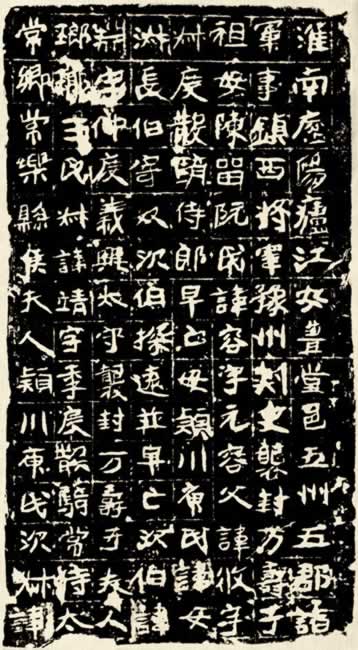 淮南歷陽廬江安豊堂邑五州五郡諸
軍事鎮西將軍豫州刺史襲封万壽子
祖母陳留阮氏諱容字元容父諱攸字
叔度散騎侍郎早亡母潁川庾氏諱女
淑長伯寄奴次伯探遠並早亡次伯諱
渊字仲度義興太守襲封万壽子夫人
瑯瑘王氏叔諱靖字季度散騎常侍太
常卿常樂縣侯夫人潁川庾氏次叔諱